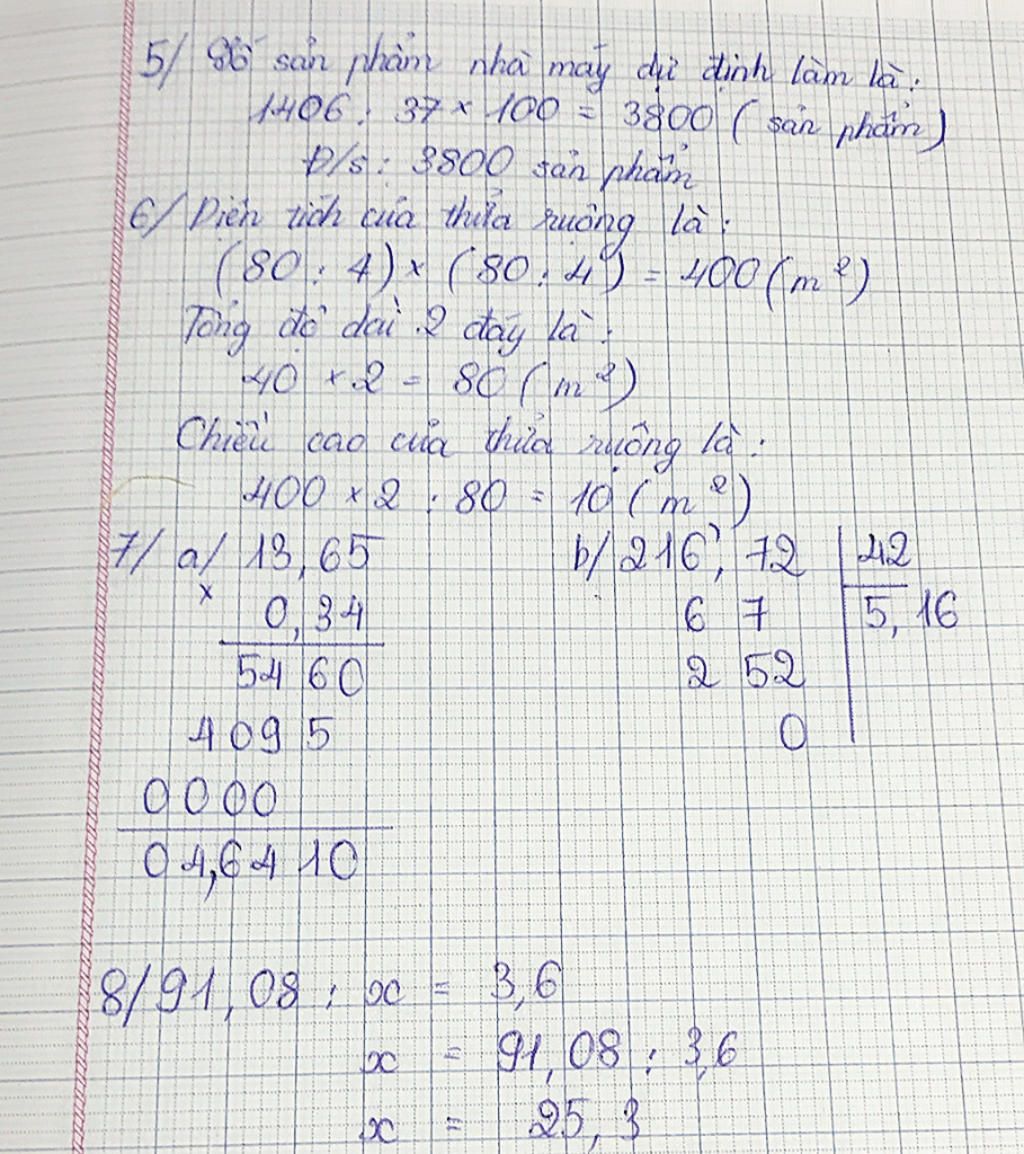 5/ Số sản phẩm nhà máy dự định làm là:
1406 : 37 × 100 = 3800 ( sản phẩm)
Đ/s : 3800 sản phẩm
6/ Diện tích của thửa ruộng là :
(80 : 4) × (80 : 4) = 400 (m²)
Tổng độ dài 2 đáy là :
40 × 2 = 80 (m²)
Chiều cao của thửa ruộng là :
400 × 2 : 80 = 10 (m²)
7/ a/ 13,65 b/ 216,72 42
× 0,34 6 7 5,16
5460 2 52
4095 0
0000
04,6410
8/ 91,08 : x = 3,6
x = 91,08 : 3,6
x = 25,3